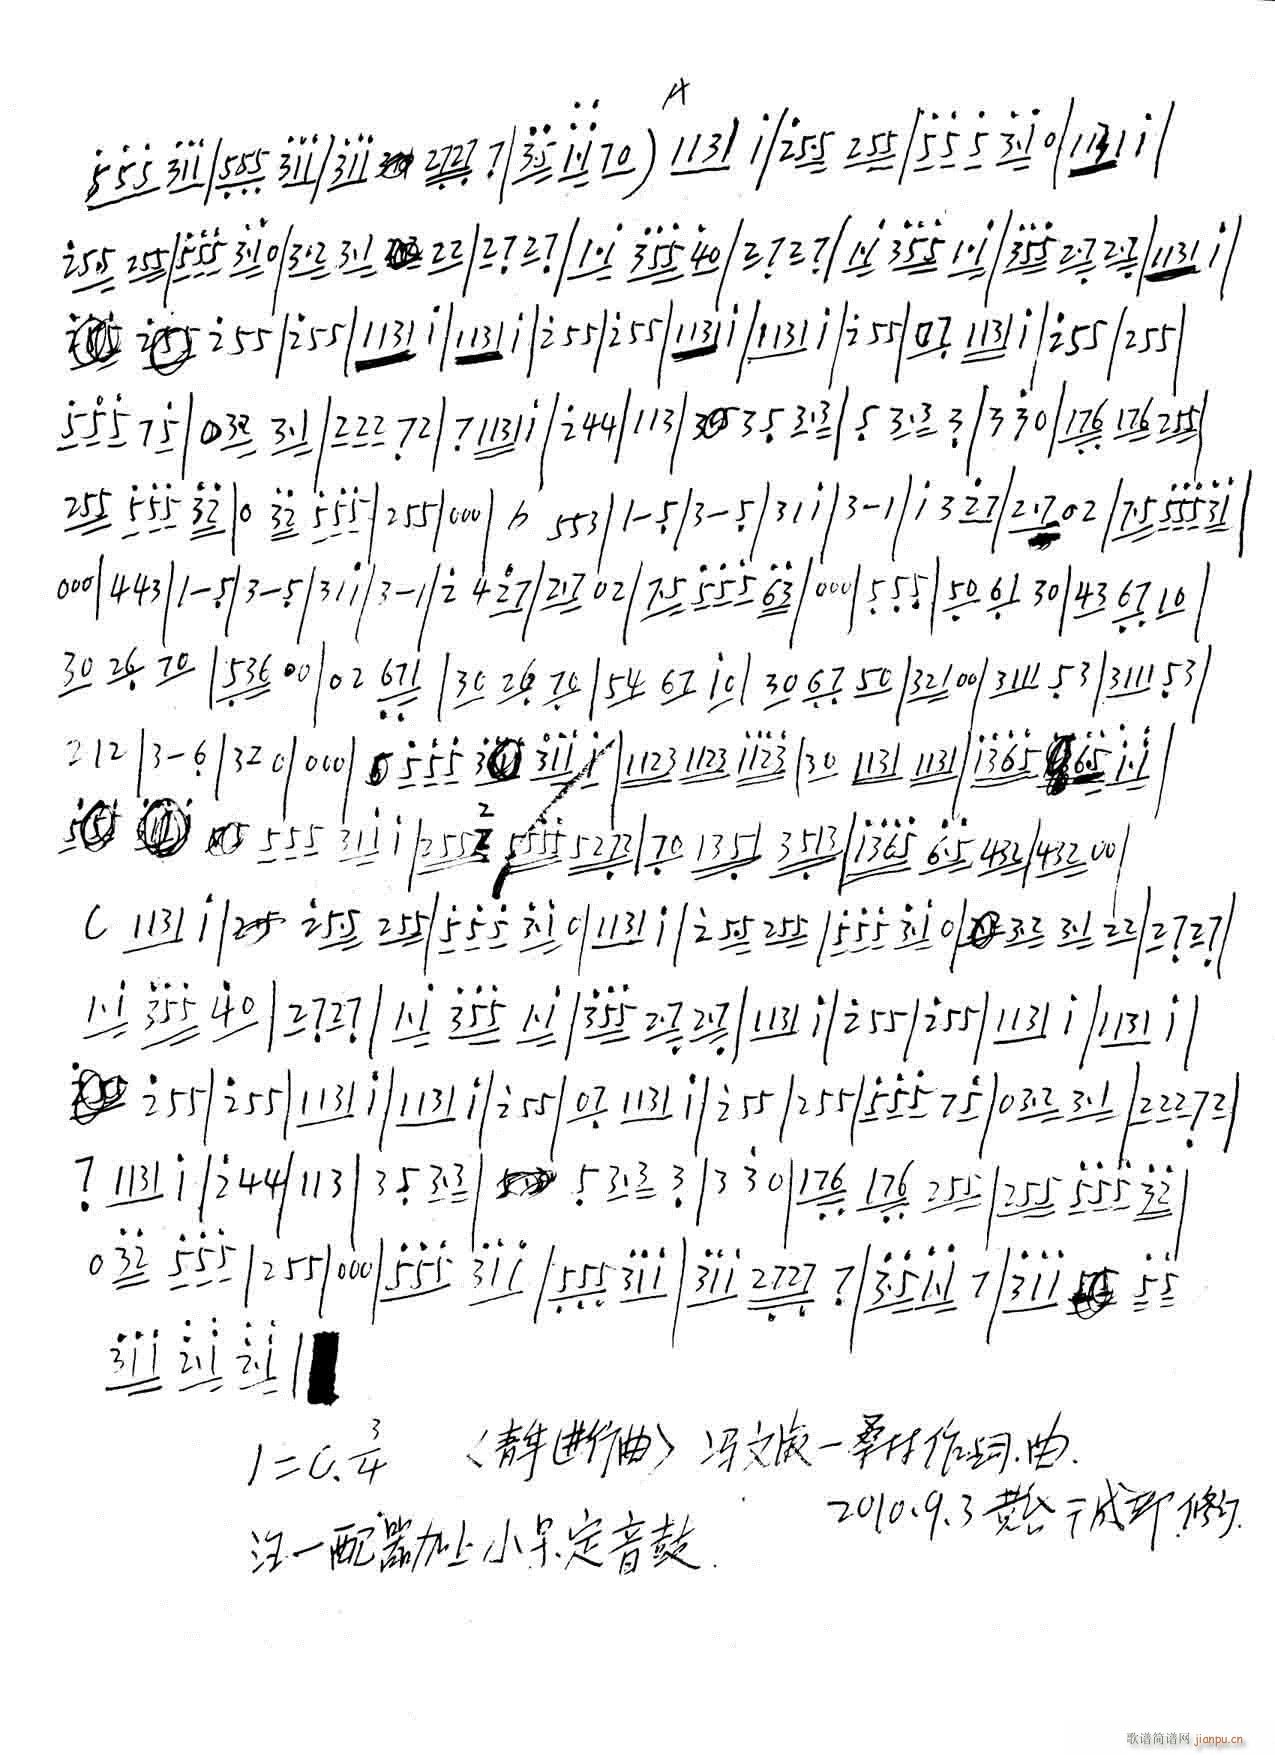 A
5 5 5 311 | 555 311 | 311 2727 7 | 3·5 1·1 70 ) 1131 i | 25·5 255 | 5 5 5 3·1 0 | 1131 i |
25·5 255 | 555 3·1 0 | 3·2 3·1 22 | 2727 | 1·i 355 40 | 2727 | 1·i 355 1·i | 355 2·7 2·7 | 1131 i |
255 | 255 | 1131 i | 1131 i | 255 | 255 | 1131 i | 1131 i | 255 | 07 1131 i | 255 | 255 |
5 5 5 75 | 032 3·1 | 222 72 | 7 1131 i | 244 | 113 | 35 3·3 | 5 3·3 3 | 3 30 | 176 176 255 |
255 555 32 | 0 32 555 | 255 | 000 | b 553 | 1-5 | 3-5 | 31i | 3-1 | i 3 27 | 2·7 02 | 7·5 55531 |
000 | 443 | 1-5 | 3-5 | 31i | 3-1 | 2 4 27 | 2·7 02 | 7·5 555 63 | 000 | 555 | 50 61 30 | 43 67 10 |
30 26 70 | 536 00 | 02 671 | 30 26 70 | 54 67 i0 | 30 67 50 | 32100 | 3111 53 | 3111 53 |
212 | 3-6 | 320 | 000 | 5 555 311 i | 1123 1123 1123 | 30 1131 1131 | 1365 6·5 1·1 |
555 311 i | 255 2 5555 5272 | 70 1351 3513 | 1365 6·5 432 | 432 00 |
C 1131 i | 25·5 255 | 5 5 5 3·1 0 | 1131 i | 25·5 255 | 555 3·1 0 | 3·2 3·1 22 | 2727 |
1·i 355 40 | 2727 | 1·i 355 1·i | 355 2·7 2·7 | 1131 i | 255 | 255 | 1131 i | 1131 i |
255 | 255 | 1131 i | 1131 i | 255 | 07 1131 i | 255 | 255 | 555 75 | 03·2 3·1 | 222 72 |
7 1131 i | 244 | 113 | 35 3·3 | 5 3·3 3 | 3 30 | 176 176 255 | 255 555 32 |
0 32 555 | 255 | 000 | 555 311 | 555 311 | 311 2727 7 | 3·5 1·1 7 | 311 55
311 2·1 2·1 |
1=C. 3/4 〈青年进行曲〉 冯文 一桑林作词.曲.
2010.9.3 黄 修订.
注一配器加上小号.定音鼓.
歌谱简谱网 jianpu.cn